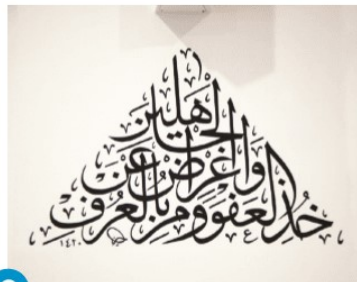 خُذِ الْعَفْوَ وَأْمُرْ بِالْعُرْفِ
وَأَعْرِضْ عَنِ
الْجَاهِلِينَ
١٤٢٠